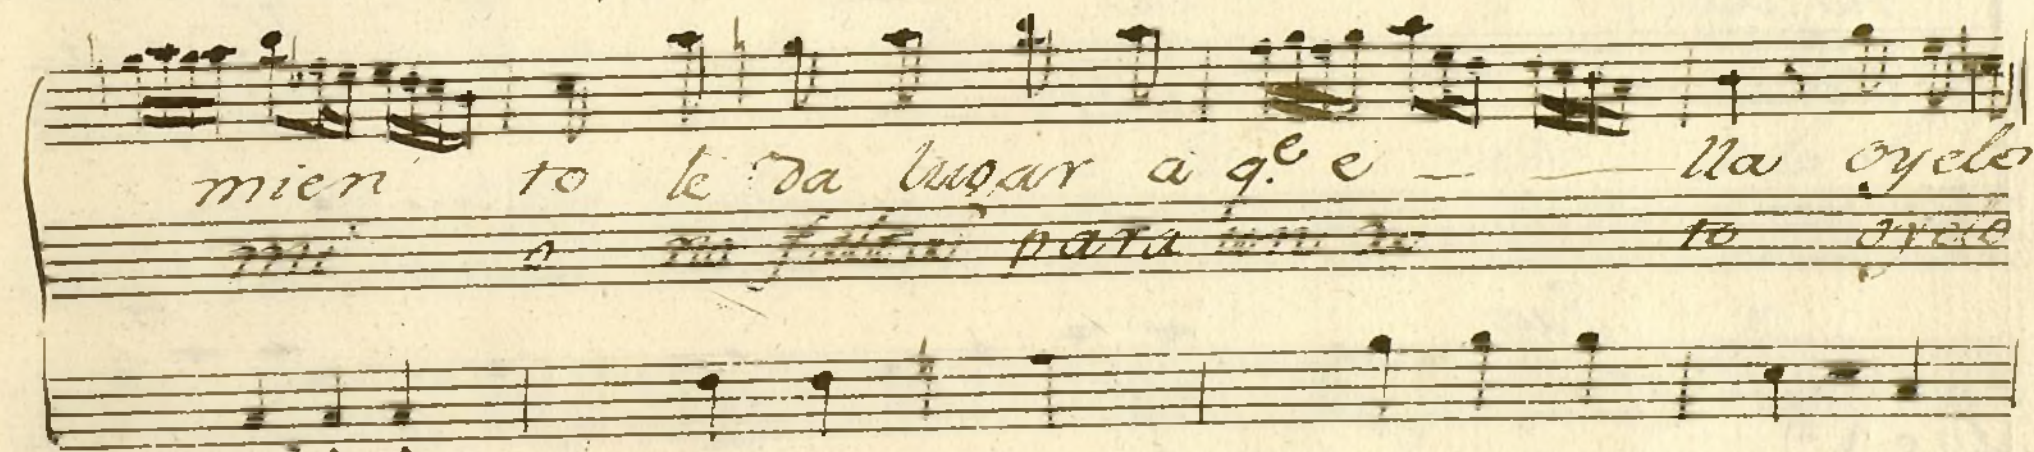 mien to le da lugar a q.e e - - lla oyelo
mi o para to oyelo